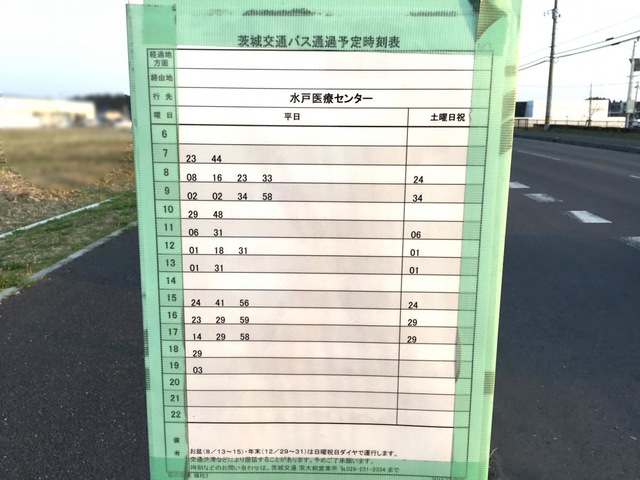 茨城交通バス通過予定時刻表
経過地
方面
経由地
行先 水戸医療センター
曜日 平日 土曜日祝
6
7 23 44
8 08 16 23 33 24
9 02 02 34 58 34
10 29 48
11 06 31 06
12 01 18 31 01
13 01 31 01
14
15 24 41 56 24
16 23 29 59 29
17 14 29 58 29
18 29
19 03
20
21
22
備考
お盆(8/13~15)・年末(12/29~31)は日曜祝日ダイヤで運行します。
交通渋滞などにより遅延することがあります。予めご了承願います。
時刻などのお問い合わせは、茨城交通 茨大前営業所 ℡029-251-2334 まで